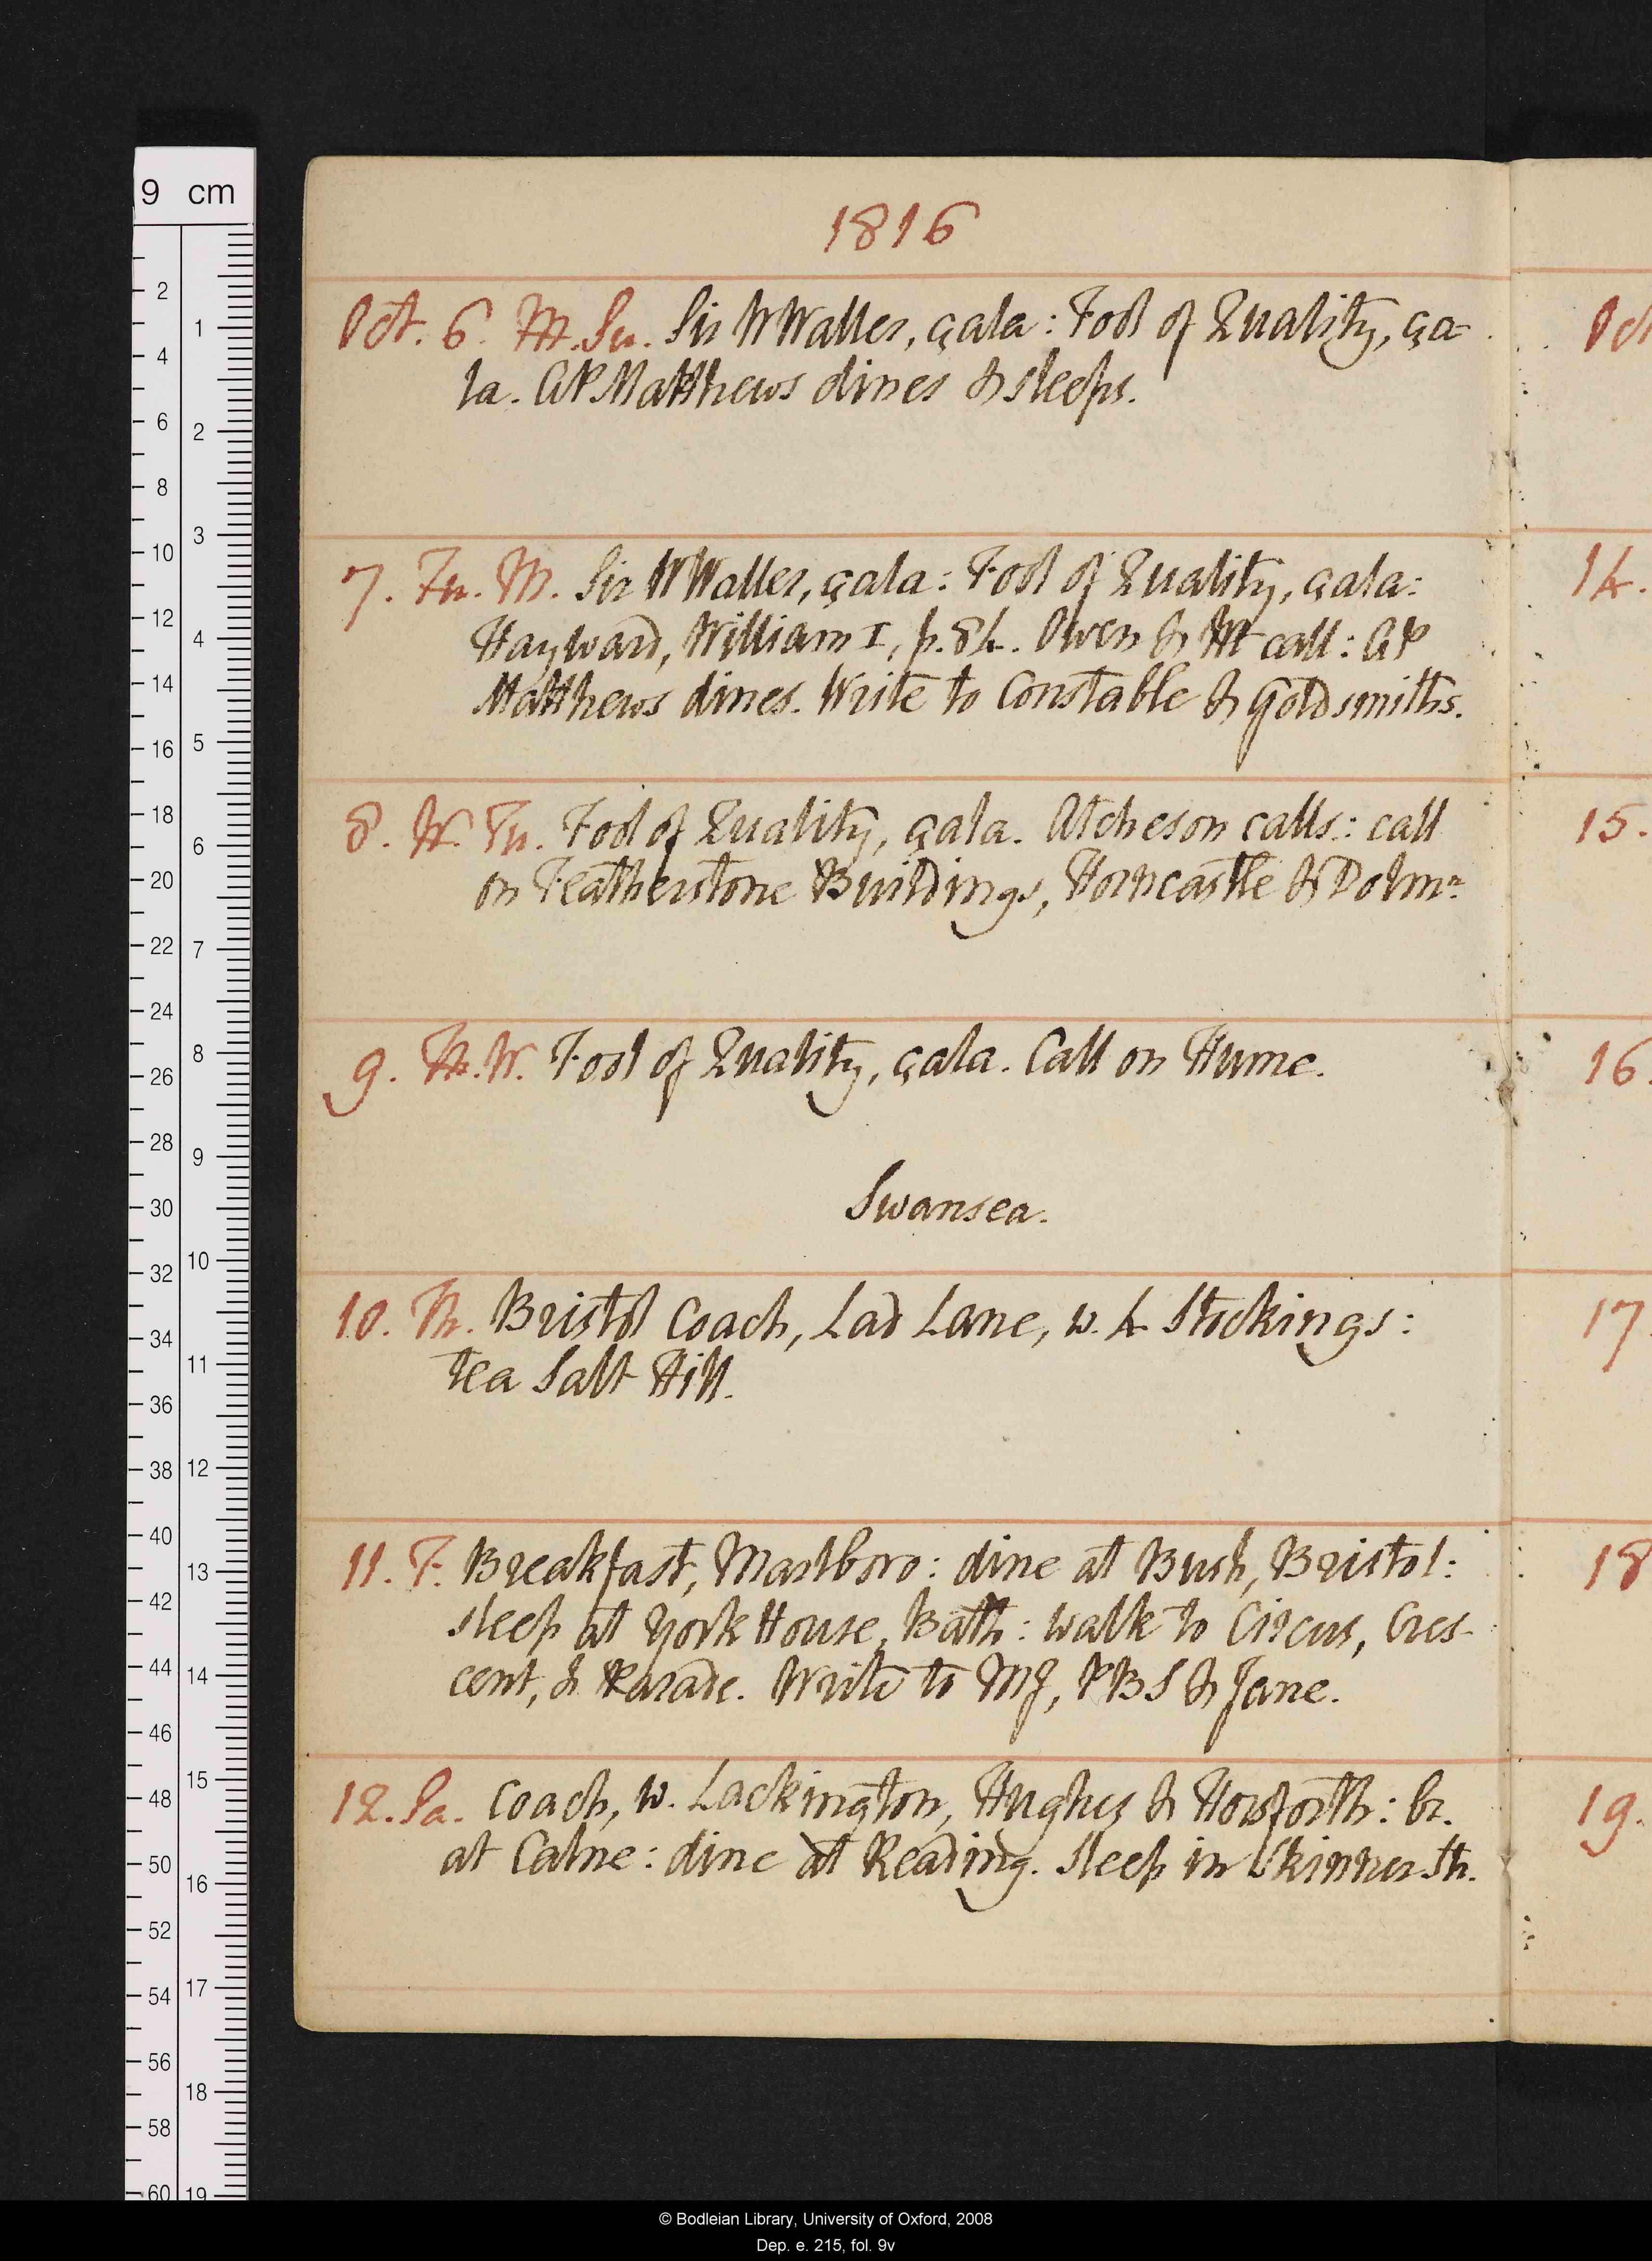 1816
Oct. 6. M. Su. Sir W Waller, çala: Fool of Quality, ça-
la. AP Matthews dines & sleeps.
7. Tu. M. Sir W Waller, çala: Fool of Quality, çala:
Hayward, William I, p. 84. Owen & M call: AP
Matthews dines. Write to Constable & Goldsmiths.
8. W. Tu. Fool of Quality, çala. Atcheson calls: call
on Featherstone Buildings, Horncastle & Dolmn
9. Th. W. Fool of Quality, çala. Call on Hume.
Swansea.
10. Th. Bristol Coach, Lad Lane, w. 4 Stockings:
tea Salt Hill.
11. F. Breakfast, Marlboro: dine at Bush, Bristol:
sleep at York House, Bath: walk to Circus, Cres-
cent, & Parade. Write to MJ, PBS & Jane.
12. Sa. Coach, w. Lackington, Hughes & Horsforth: br.
at Calne: dine at Reading. Sleep in Skinner St.
Oct
14.
15.
16.
17
18
19.
9 cm
2
4
6
8
10
12
14
16
18
20
22
24
26
28
30
32
34
36
38
40
42
44
46
48
50
52
54
56
58
60
1
2
3
4
5
6
7
8
9
10
11
12
13
14
15
16
17
18
19
© Bodleian Library, University of Oxford, 2008
Dep. e. 215, fol. 9v